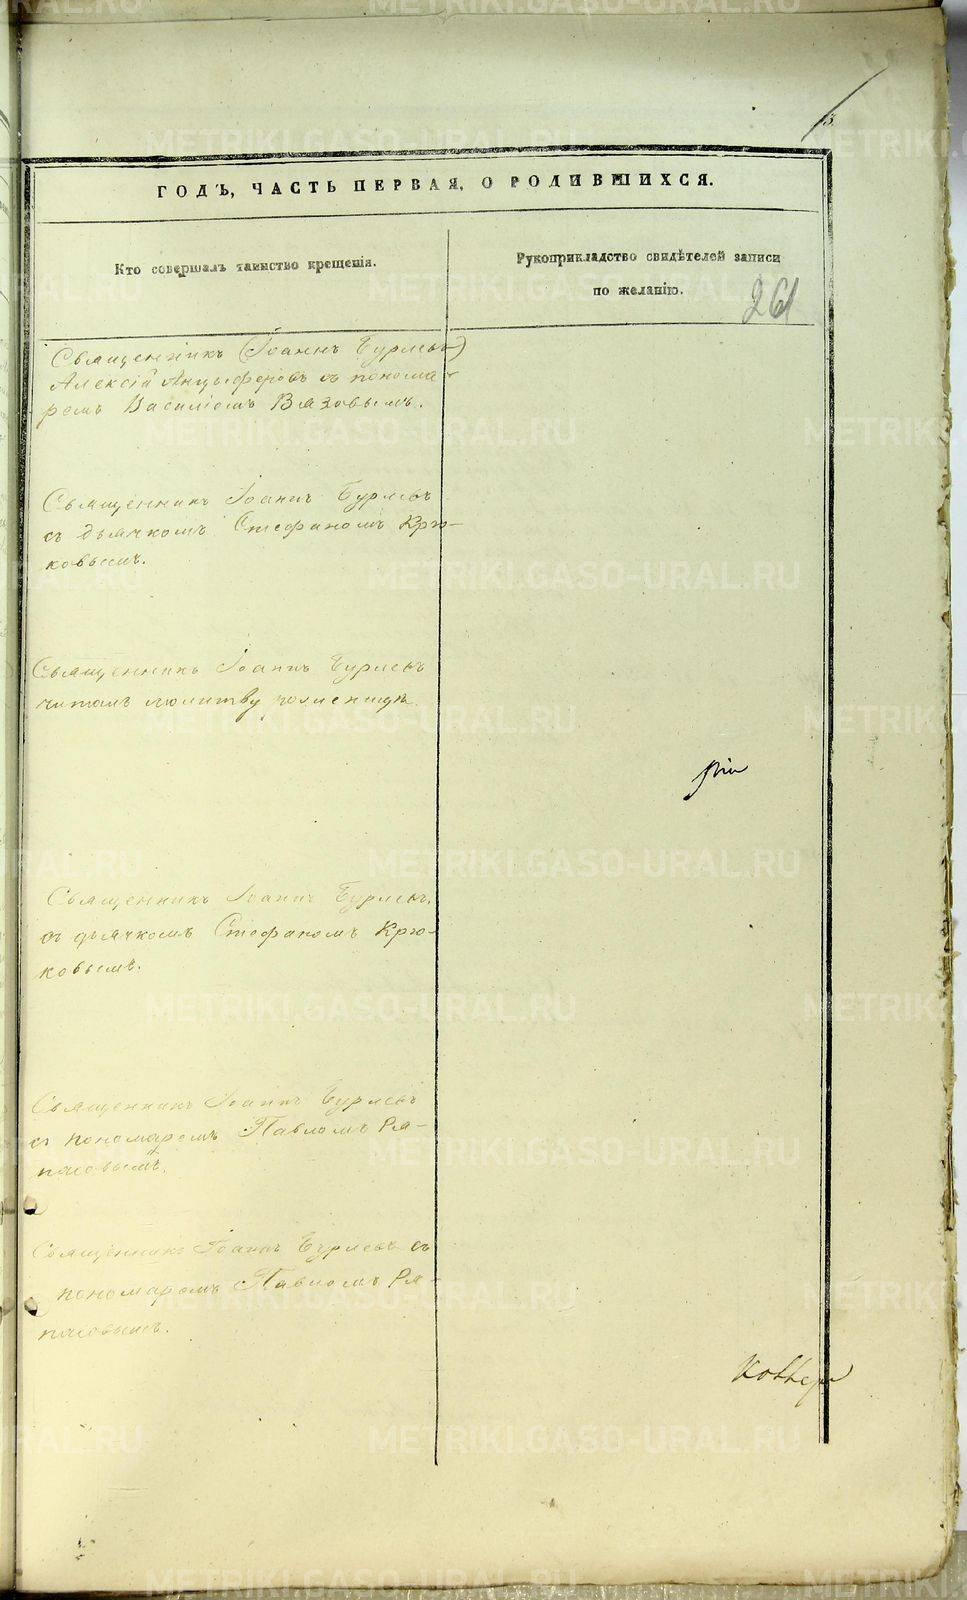 ГОДЪ, ЧАСТЬ ПЕРВАЯ, О РОДИВШИХСЯ.
Кто совершалъ таинство крещенія.
Рукоприкладство свидѣтелей записи
по желанію.
261
Священникъ (Іоаннъ Бурлевъ)
Алексій Анцыферовъ съ понома-
ремъ Василіемъ Вязовымъ.
Священникъ Іоаннъ Бурлевъ
съ дьячкомъ Стефаномъ Крю-
ковымъ.
Священникъ Іоаннъ Бурлевъ
читалъ молитву роженицѣ
Священникъ Іоаннъ Бурлевъ
съ дьячкомъ Стефаномъ Крю-
ковымъ.
Священникъ Іоаннъ Бурлевъ
съ пономаремъ Павломъ Ря-
пасовымъ.
Священникъ Іоаннъ Бурлевъ съ
пономаремъ Павломъ Ря-
пасовымъ.
METRIKI.GASO-URAL.RU